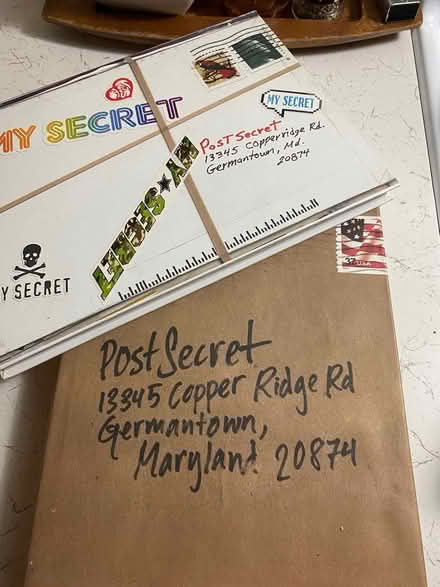 MY SECRET
MY SECRET
PostSecret
13345 Copperridge Rd.
Germantown, Md.
20874
MY★SECRET
Y SECRET
37 USA
PostSecret
13345 Copper Ridge Rd
Germantown,
Maryland 20874